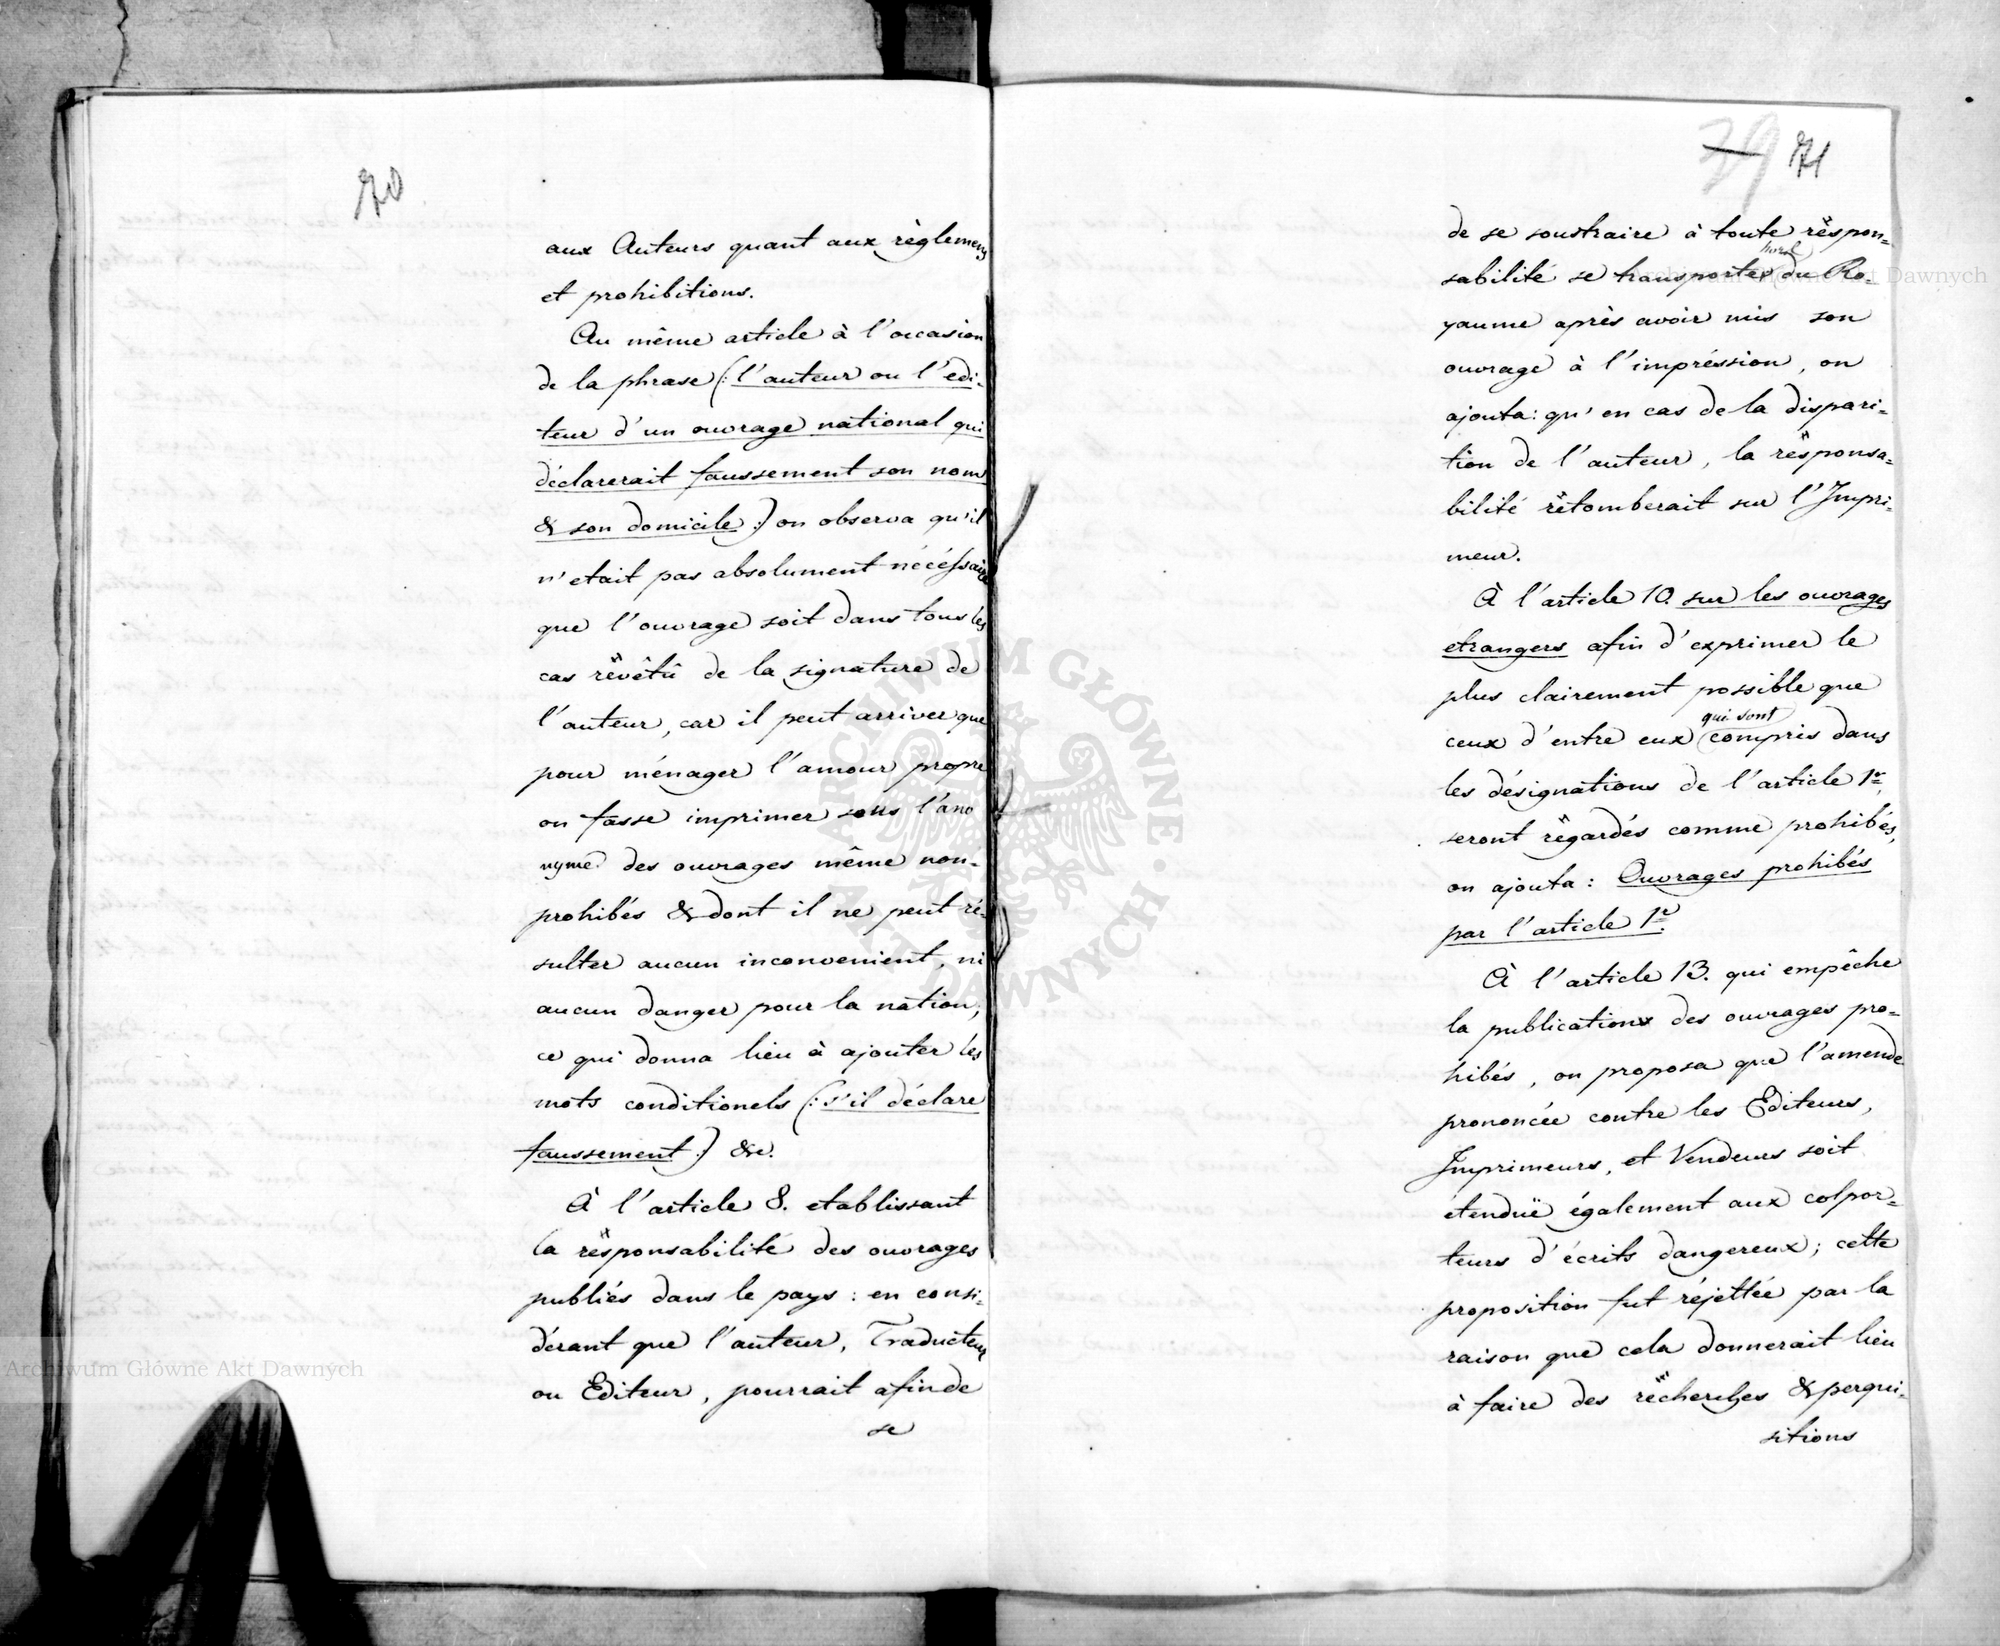 70
aux Auteurs quant aux règlemens
et prohibitions.
Au même article à l'occasion
de la phrase (: l'auteur ou l'edi-
teur d'un ouvrage national qui
déclarerait faussement son nom
& son domicile :) on observa qu'il
n'etait pas absolument nécéssaire
que l'ouvrage soit dans tous les
cas rëvêtû de la signature de
l'auteur, car il peut arriver que
pour ménager l'amour propre
on fasse imprimer sous l'ano
nyme des ouvrages même non-
prohibés & dont il ne peut ré-
sulter aucun inconvenient, ni
aucun danger pour la nation;
ce qui donna lieu à ajouter les
mots conditionels (: s'il déclare
faussement :) &c.
À l'article 8. etablissant
la rësponsabilité des ouvrages
publiés dans le pays : en consi-
dérant que l'auteur, Traducteur
ou Editeur, pourrait afin de
se
79 71
de se soustraire à toute rëspon-
sabilité se transporter hors du Ro-
yaume après avoir mis son
ouvrage à l'impréssion, on
ajouta: qu'en cas de la dispari-
tion de l'auteur, la rësponsa-
bilité rëtomberait sur l'Impri-
meur.
À l'article 10. sur les ouvrages
etrangers afin d'exprimer le
plus clairement possible que
ceux d'entre eux qui sont compris dans
les désignations de l'article 1r.
seront rëgardés comme prohibés,
on ajouta : Ouvrages prohibés
par l'article 1r.
À l'article 13. qui empêche
la publication des ouvrages pro-
hibés, on proposa que l'amende
prononcée contre les Editeurs,
Imprimeurs, et Vendeurs soit
étenduë également aux colpor-
teurs d'écrits dangereux; cette
proposition fut réjettée par la
raison que cela donnerait lieu
à faire des rëcherches & perqui-
sitions
Archiwum Główne Akt Dawnych
Archiwum Główne Akt Dawnych
ARCHIWUM GŁÓWNE · AKT DAWNYCH ·